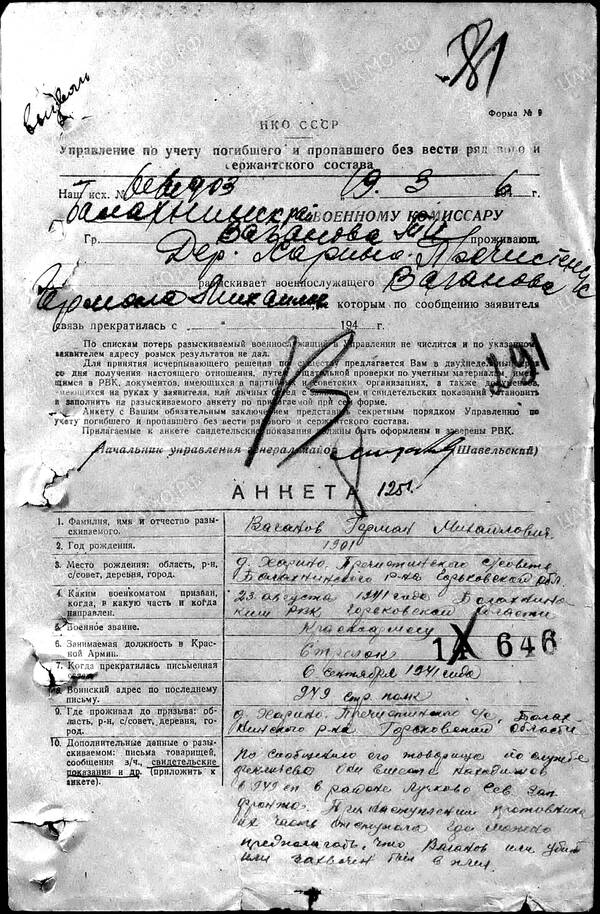 181
Форма № 9
НКО СССР
Управление по учету погибшего и пропавшего без вести рядового и
сержантского состава
Наш исх. № 19. 3 6 г.
ВОЕННОМУ КОМИССАРУ
Гр. Ваганова М И проживающ.
Дер. Харино
разыскивает военнослужащего Ваганова
с которым по сообщению заявителя
связь прекратилась с „ " 194 г.
По спискам потерь разыскиваемый военнослужащий в Управлении не числится и по указанному
заявителем адресу розыск результатов не дал.
Для принятия исчерпывающего решения по существу предлагается Вам в двухнедельный срок
со дня получения настоящего отношения, путем тщательной проверки по учетным материалам, имею-
щимся в РВК, документов, имеющихся в партийных и советских организациях, а также документов,
имеющихся на руках у заявителя, или личных бесед с заявителем и свидетельских показаний установить
и заполнить на разыскиваемого анкету по прилагаемой при сем форме.
Анкету с Вашим обязательным заключением представить секретным порядком Управлению по
учету погибшего и пропавшего без вести рядового и сержантского состава.
Прилагаемые к анкете свидетельские показания должны быть оформлены и заверены РВК.
Начальник управления генерал-майор (Шавельский)
291
АНКЕТА 1251
1. Фамилия, имя и отчество разы-
скиваемого. Ваганов Герман Михайлович
2. Год рождения. 1901
3. Место рождения: область, р-н,
с/совет, деревня, город. д. Харино, Пречистинского с/совета
Балахнинского р-на Горьковской обл.
4. Каким военкоматом призван,
когда, в какую часть и когда
направлен. 23 августа 1941 года Балахнин-
ким РВК Горьковской области
5. Военное звание. Красноармеец
6. Занимаемая должность в Крас-
ной Армии. стрелок
14 646
7. Когда прекратилась письменная
6 сентября 1941 года
8. Воинский адрес по последнему
письму. 949 стр. полк
9. Где проживал до призыва: об-
ласть, р-н, с/совет, деревня, го-
род. д. Харино, Пречистинского с/с, Балах-
нинского р-на Горьковской области
10. Дополнительные данные о разы-
скиваемом: письма товарищей,
сообщения з/ч., свидетельские
показания и др. (приложить к
анкете).
По сообщению его товарища по службе
они вместе находились
в 949 сп в районе Лучково Сев. Зап
фронта. При наступлении противника
их часть отступала где можно
предполагать, что Ваганов или убит
или захвачен был в плен.